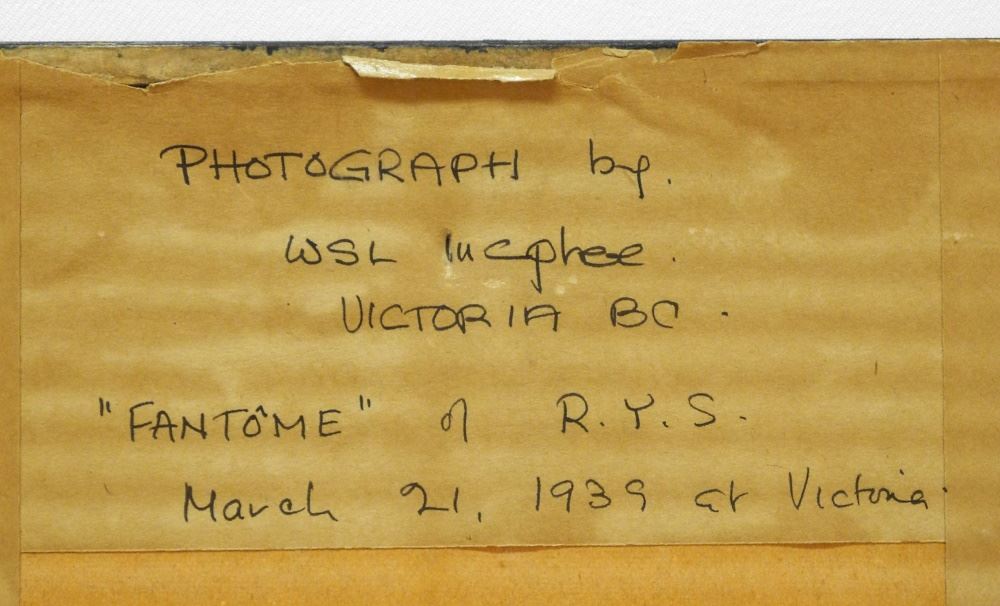 PHOTOGRAPH by.
WSL McPhee.
VICTORIA BC.
"FANTÔME" of R.Y.S.
March 21, 1939 at Victoria.